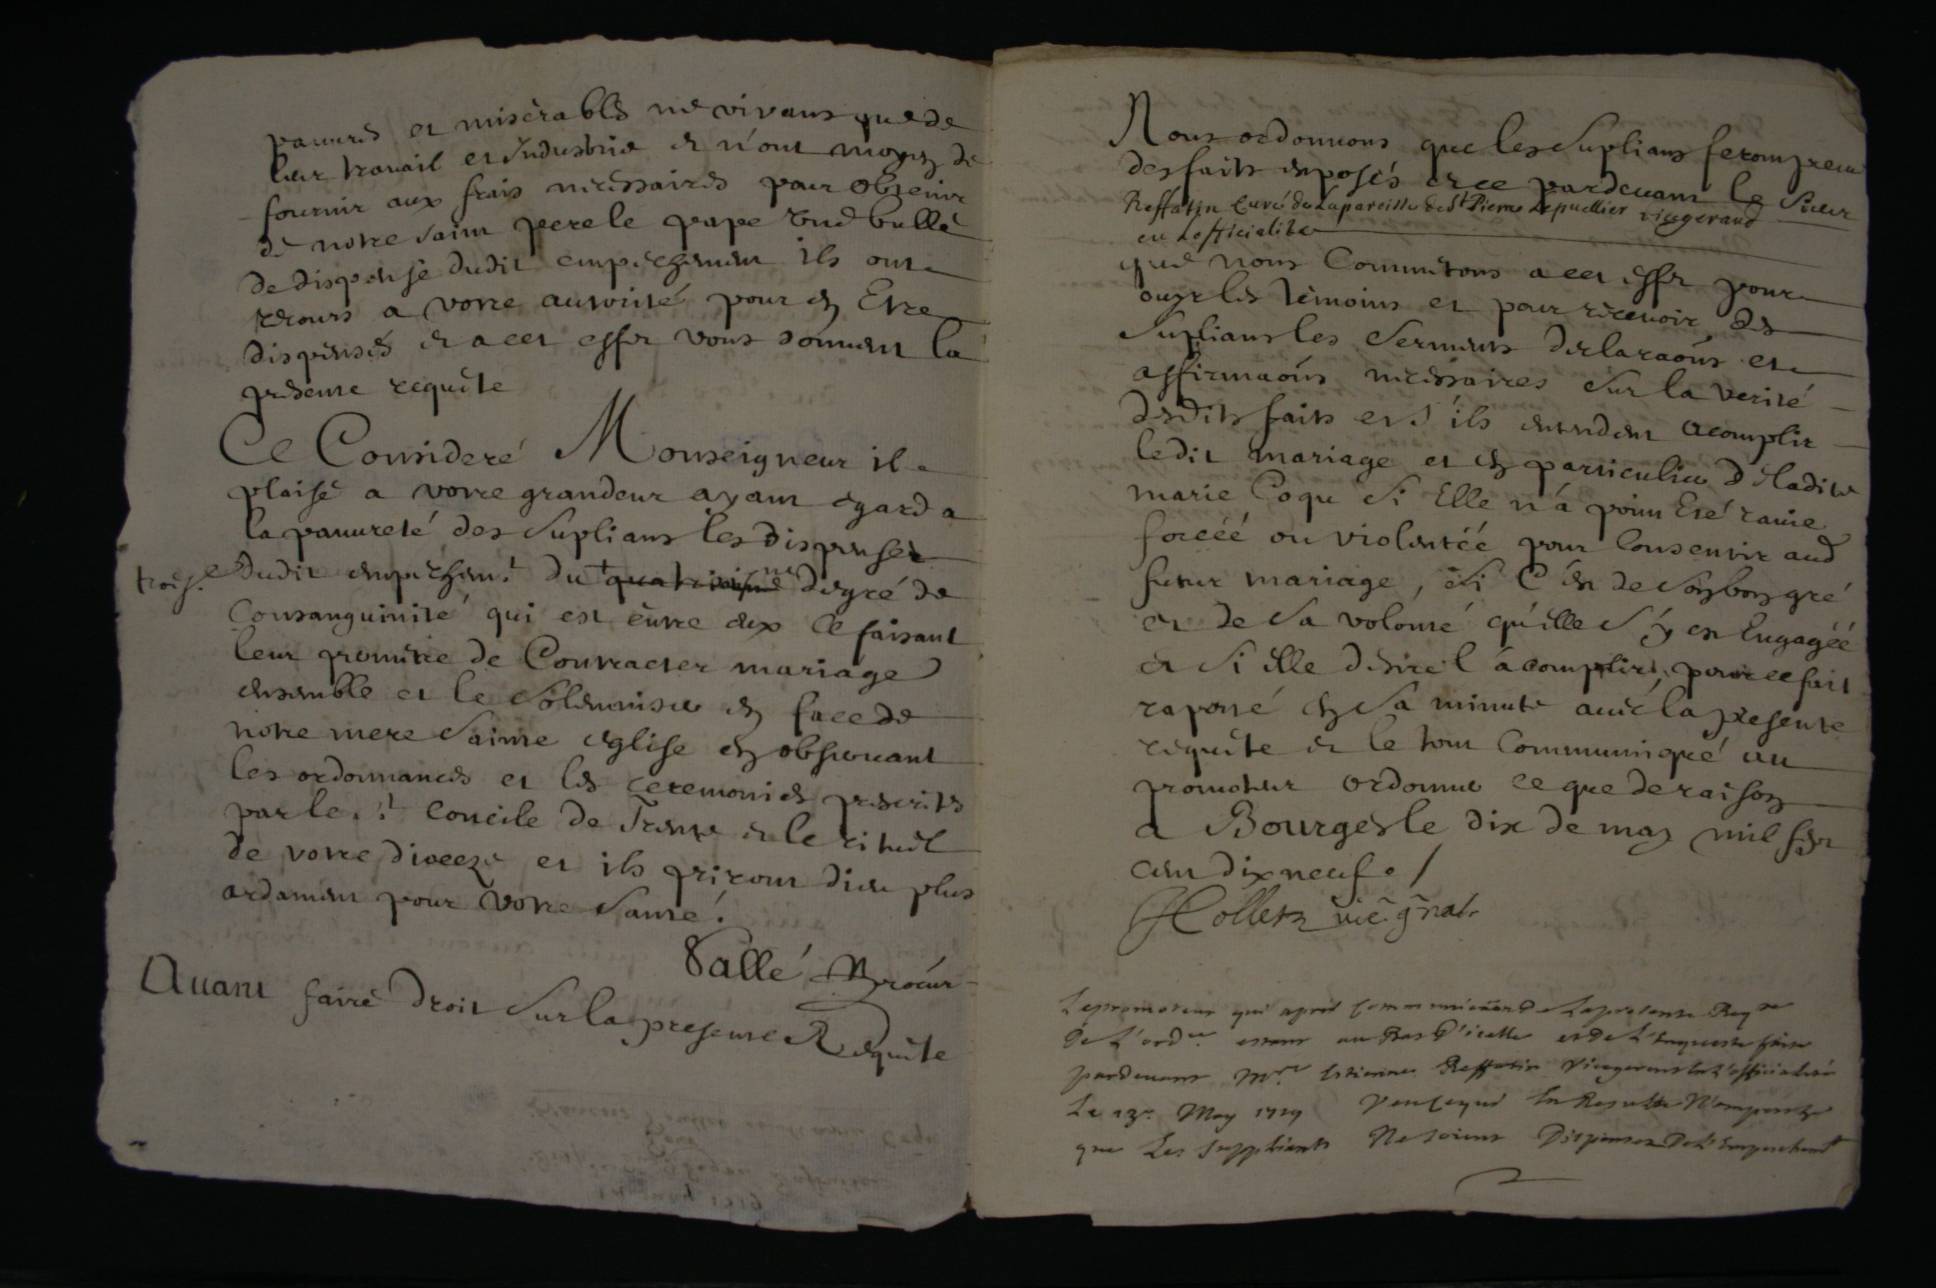 pauures et miserables ne vivans que de
leur travail et Industrie et n'ont moyen de
fournir aux frais necessaires pour obtenir
de notre saint pere le pape une bulle
de dispense dudit empeschement ils ont
recours a votre autorité pour en Etre
dispensés et a cet effet vous donnent la
presente requête
Ce Consideré Monseigneur il
plaise a votre grandeur ayant egard a
la pauureté des Suplians les dispenser
trois.e
dudit empêchem.t du + quatriesme degré de
Consanguinité qui est entre eux Ce faisant
leur promettre de Contracter mariage
ensemble et le solemniser en face de
notre mere sainte eglise en observant
les ordonnances et les ceremonies prescrits
par le s.t Concile de Trente et le rituel
de votre dioceze et ils priront dieu plus
ardament pour votre santé.
Vallé Procur
Auant faire droit Sur la presente Requête
Nous ordonnons que les Suplians feront preuu
des faits exposés et ce pardeuant le Sieur
Reffatin Curé de La paroisse de St Pierre Le puellier vicegerand
en Lofficialité
que nous Commetons a cet effet pour
ouyr les temoins et pour receuoir des
Suplians les Serments declaraõns et
affirmaõns necessaires Sur la verité
desdits faits et S'ils entendent acomplir
ledit mariage et en particulier d Ladite
marie Coqu Si Elle n'a point Eté rauie
forcéé ou violentéé pour Consentir aud
futur mariage, Si C'est de Son bon gré
et de Sa volonté qu'elle S'y est Engagéé
et Si elle desire l'acomplir, pour ce fait
raporté en Sa minute auec la presente
requête et le tout Communiqué au
promoteur ordonner ce que de raison
a Bourges le dix de may mil sept
cent dix neuf. /
Colletz vic. g̃nal.
Le promoteur qui apres Communicãon de La presente Req.te
de L'ord.ce estant au Bas d'icelle et de L'Enqueste faite
pardeuant M.re Estienne Reffatin Vicegerent en L'officialité
Le 13.e May 1719 Veu ce qui En Resulte N'empesche
que Les Suppliants Ne soient Dispenses De L'Empechem.t